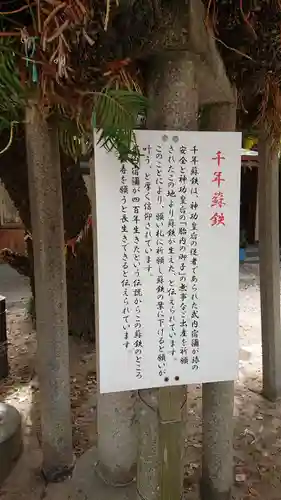 千年蘇鉄
千年蘇鉄は、神功皇后の従者であられた武内宿禰が旅の
安全と神功皇后の「胎内の御子」の無事なご出産を祈願
されたこの地より蘇鉄が生えた、と伝えられています。
このことにより、願い札に祈願し蘇鉄の葉に下げると願いが
叶う、と厚く信仰されています。
武内宿禰が四百年生きたという伝説からこの蘇鉄のところ
長寿を願うと長生きできると伝えられています。